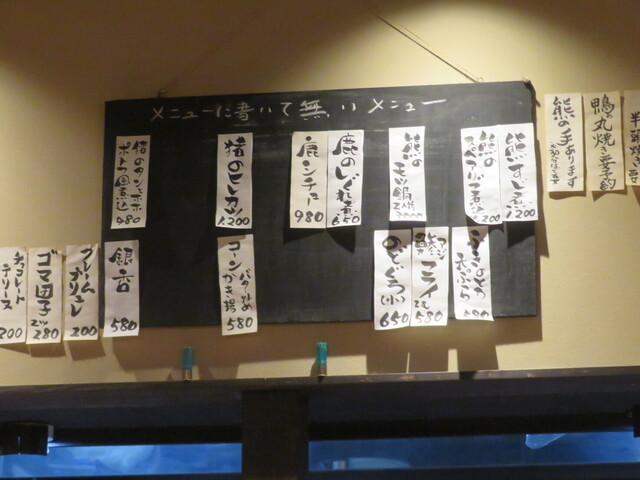 メニューに書いて無いメニュー
熊の手あります
鴨の丸焼き要予約
熊すじ煮 1200
熊の
200
熊のモツ鍋
鹿のしぐれ煮 650
鹿シンチョー 980
猪のヒレカツ 1200
猪のタンとホホ
ポトフ風煮込 980
天ぷら
フライ 2コ 580
のどぐろ(小) 650
コーンかき揚
バター炒め 580
銀杏 580
クレームブリュレ 200
ゴマ団子 2ツ 280
チョコレートテリーヌ 300